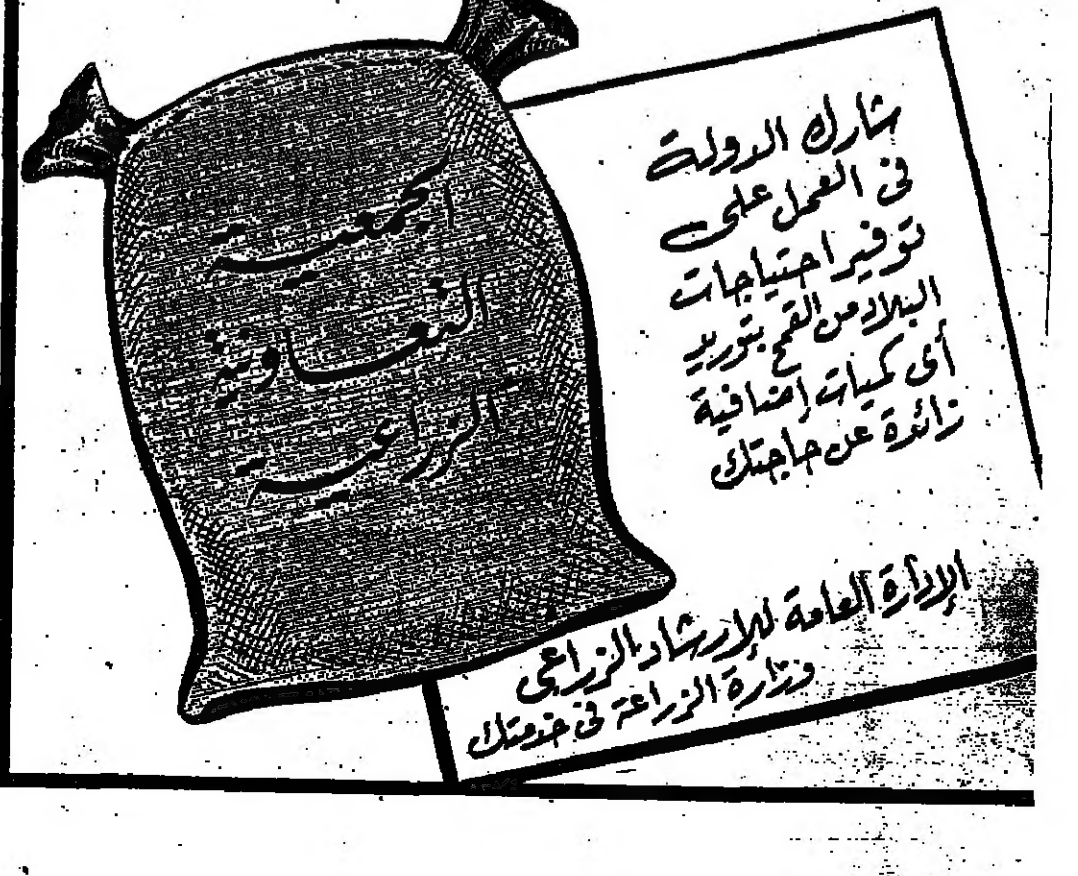 الجمعية
التعاونية
الزراعية
شارك الدولة
فى العمل على
توفير احتياجات
البلاد من القمح بتوريد
أى كميات إضافية
زائدة عن حاجتك
الإدارة العامة للإرشاد الزراعى
وزارة الزراعة فى خدمتك